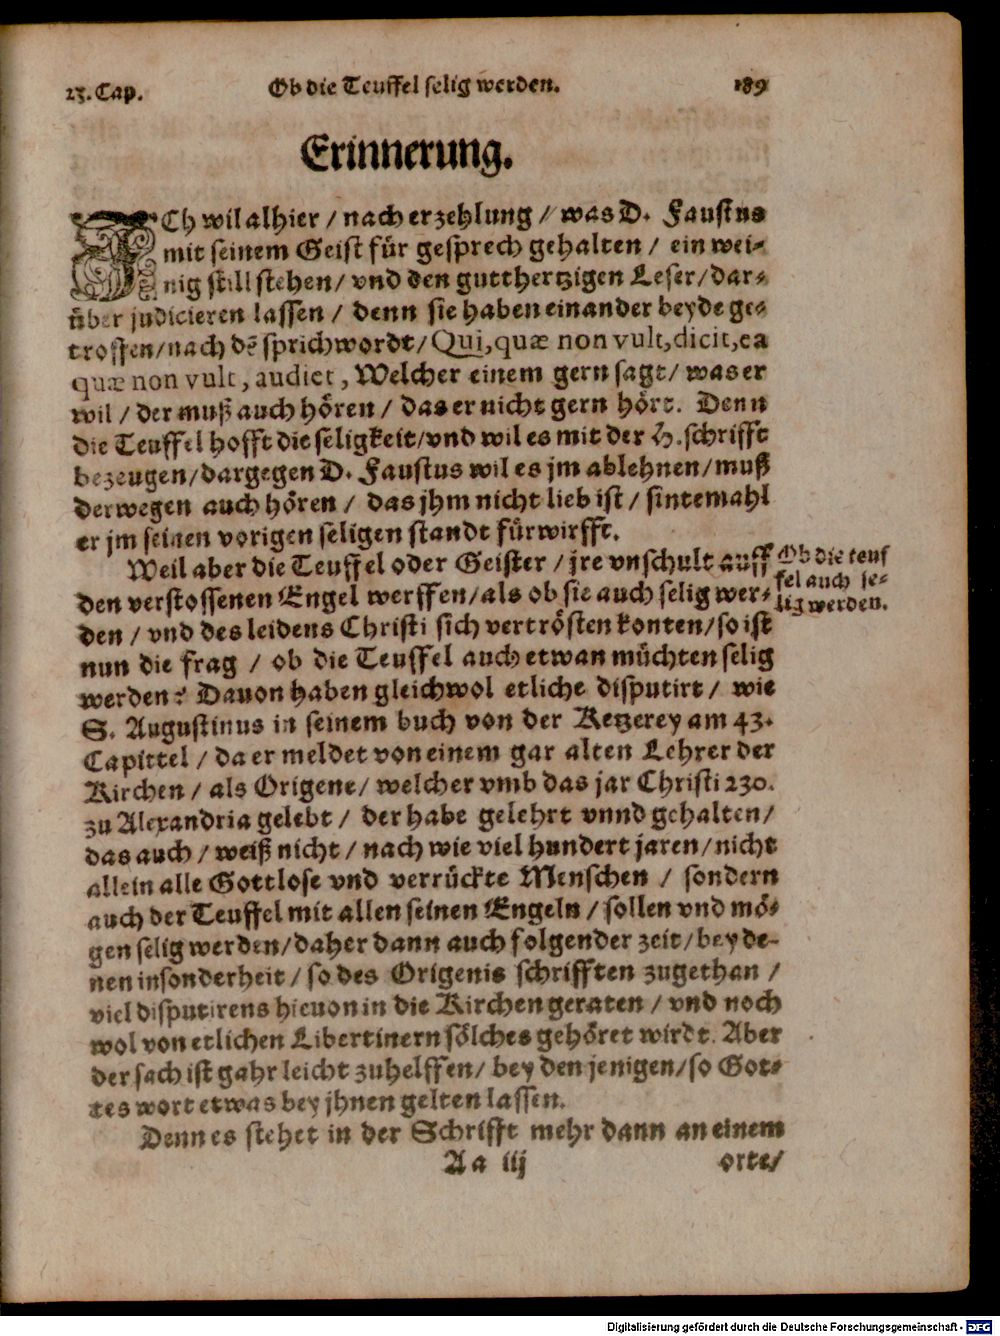 23. Cap. Ob die Teuffel selig werden. 189
Erinnerung.
ICh wil alhier / nach erzehlung / was D. Faustus
mit seinem Geist für gesprech gehalten / ein wei-
nig still stehen / vnd den gutthertzigen Leser / dar-
über judicieren lassen / denn sie haben einander beyde ge-
troffen / nach dē sprichwordt / Qui, quæ non vult, dicit, ea
quæ non vult, audiet, Welcher einem gern sagt / was er
wil / der muß auch hören / das er nicht gern hört. Denn
die Teuffel hofft die seligkeit / vnd wil es mit der H. schrifft
bezeugen / dargegen D. Faustus wil es jm ablehnen / muß
derwegen auch hören / das jhm nicht lieb ist / sintemahl
er jm seinen vorigen seligen standt fürwirfft.
Weil aber die Teuffel oder Geister / jre vnschult auff
den verstossenen Engel werffen / als ob sie auch selig wer-
den / vnd des leidens Christi sich vertrösten konten / so ist
nun die frag / ob die Teuffel auch etwan müchten selig
werden? Dauon haben gleichwol etliche disputirt / wie
S. Augustinus in seinem buch von der Ketzerey am 43.
Capittel / da er meldet von einem gar alten Lehrer der
Kirchen / als Origene / welcher vmb das jar Christi 230.
zu Alexandria gelebt / der habe gelehrt vnnd gehalten /
das auch / weiß nicht / nach wie viel hundert jaren / nicht
allein alle Gottlose vnd verrückte Menschen / sondern
auch der Teuffel mit allen seinen Engeln / sollen vnd mö-
gen selig werden / daher dann auch folgender zeit / bey de-
nen insonderheit / so des Origenis schrifften zugethan /
viel disputirens hieuon in die Kirchen geraten / vnd noch
wol von etlichen Libertinern sölches gehöret wirdt. Aber
der sach ist gahr leicht zuhelffen / bey den jenigen / so Got-
tes wort etwas bey jhnen gelten lassen.
Denn es stehet in der Schrifft mehr dann an einem
Aa iij orte /
Ob die teuf
fel auch se-
lig werden.
Digitalisierung gefördert durch die Deutsche Forschungsgemeinschaft - DFG